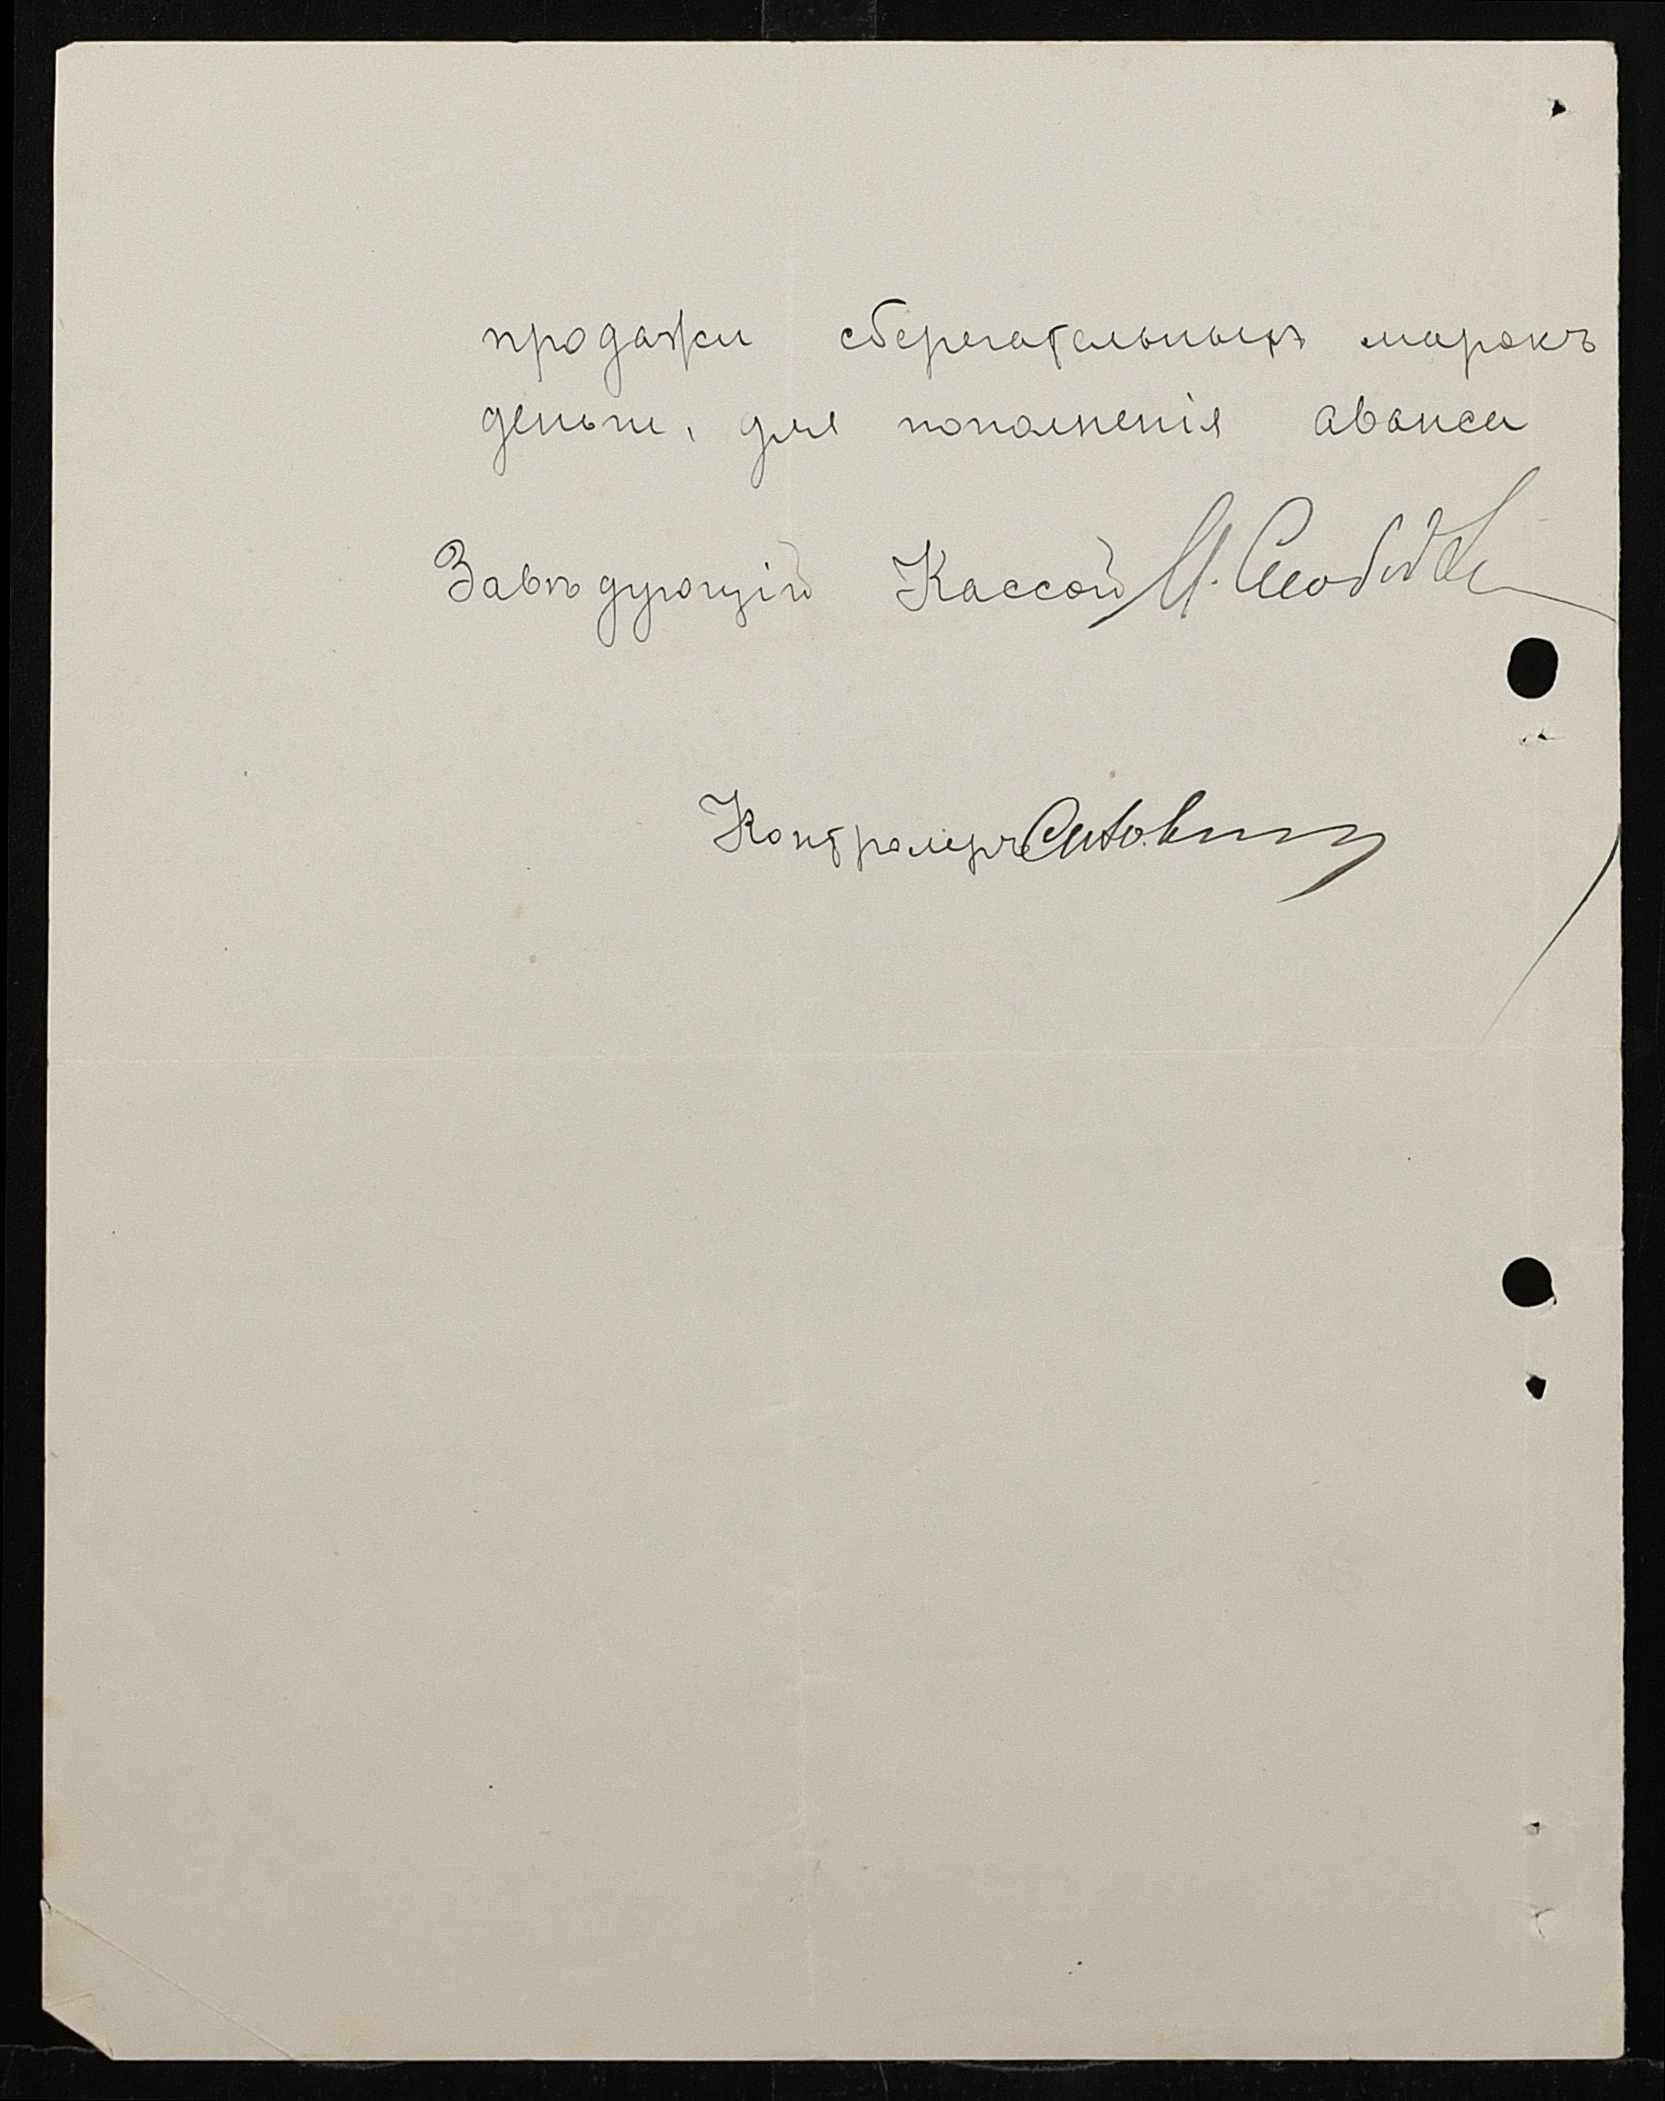 продажи сберегательныхъ марокъ
деньги, для пополненія аванса
Завѣдующій Кассой И.
Контролеръ